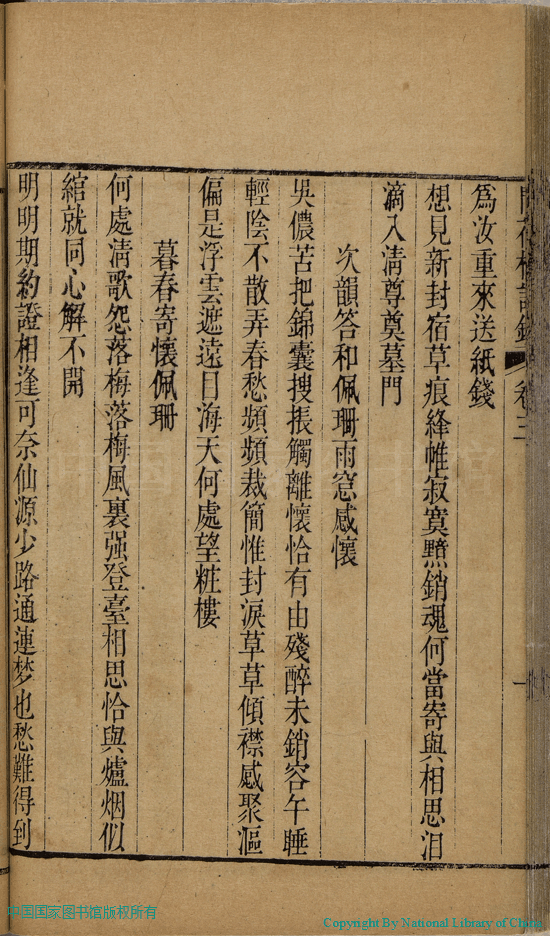 爲汝重來送紙錢
想見新封宿草痕絳帷寂寞黯銷魂何當寄與相思淚
滴入淸尊奠墓門
次韻答和佩珊雨窓感懷
吳儂苦把錦囊搜振觸離懷恰有由殘醉未銷容午睡
輕陰不散弄春愁頻頻裁簡惟封淚草草傾襟感聚漚
偏是浮雲遮遠目海天何處望粧樓
暮春寄懷佩珊
何處淸歌怨落梅落梅風裏强登臺相思恰與爐烟似
綰就同心解不開
明明期約證相逢可奈仙源少路通連梦也愁難得到
中国国家图书馆版权所有
Copyright By National Library of China